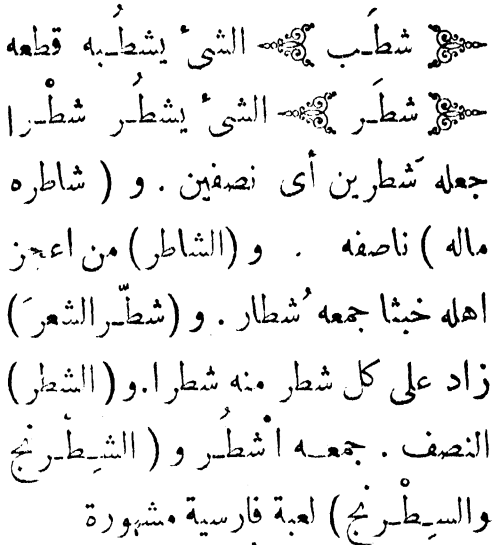 ﴿ شطَـب ﴾ الشىء يشطُـبه قطعه
﴿ شطَـر ﴾ الشىء يشطُـر شطْـرا
جعله شَطرين أى نصفين . و ( شاطره
ماله ) ناصفه . و (الشاطر) من اعجز
اهله خبثا جمعه شُطار . و (شطّـر الشعرَ)
زاد على كل شطر منه شطرا . و (الشطر)
النصف . جمعـه اشْطُـر و ( الشِـطْـرنج
والسِـطْـرنج) لعبة فارسية مشهورة